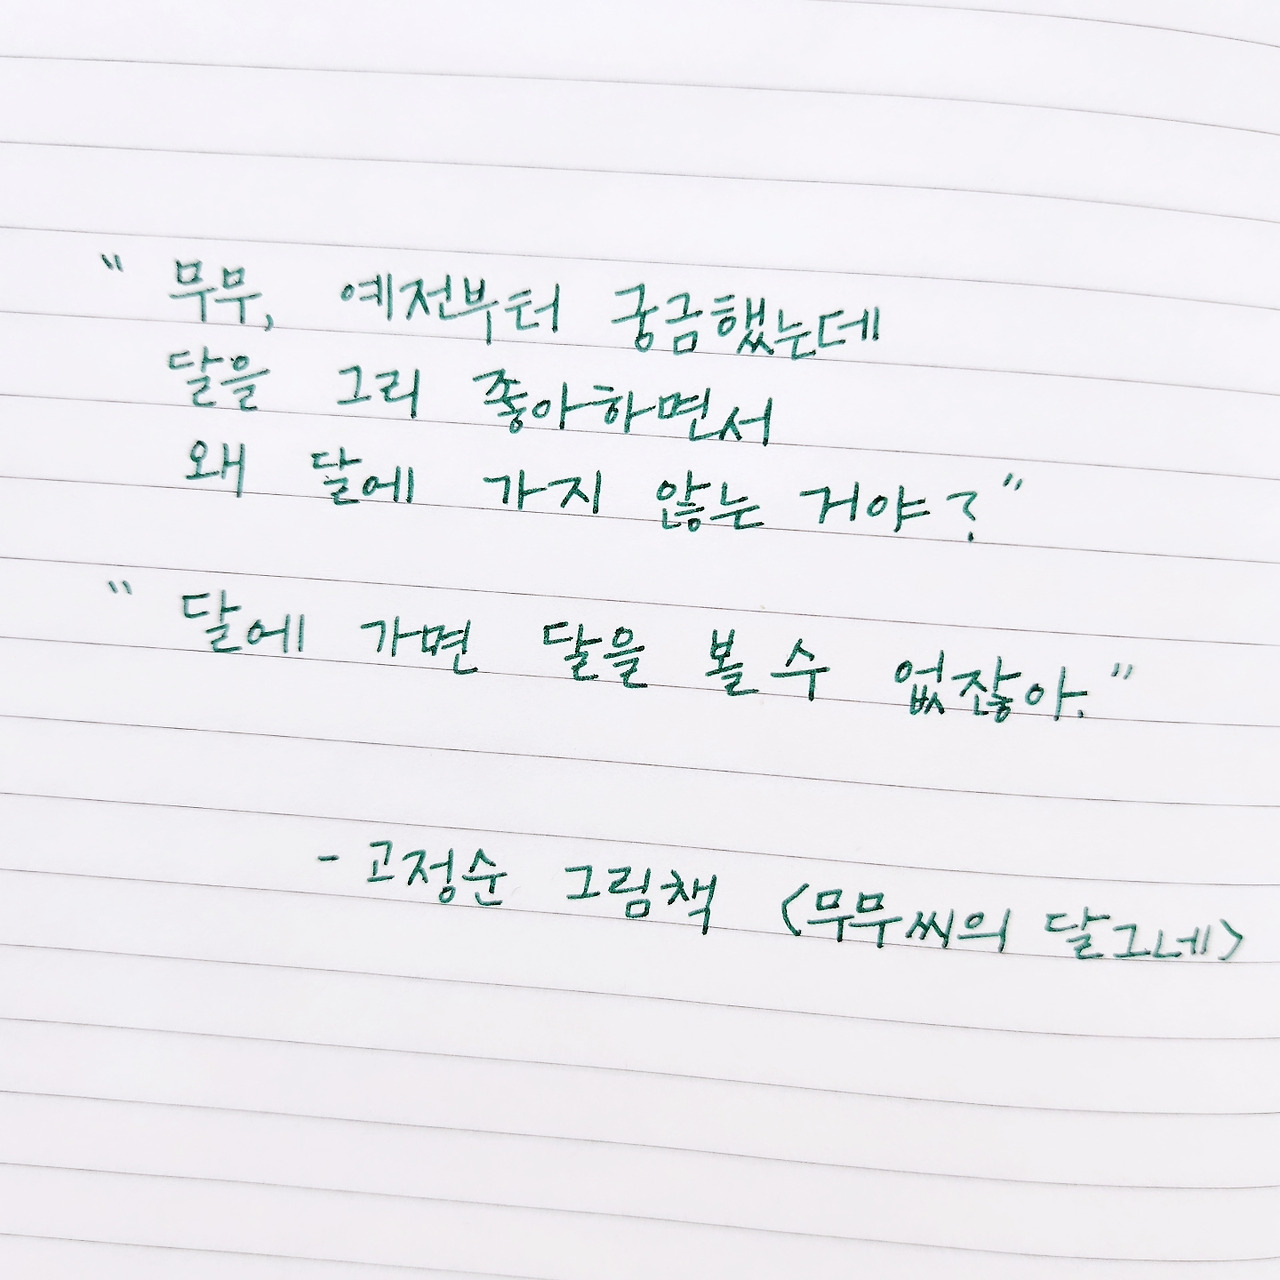 " 무무, 예전부터 궁금했는데
달을 그리 좋아하면서
왜 달에 가지 않는 거야? "
" 달에 가면 달을 볼 수 없잖아. "
- 고정순 그림책 <무무씨의 달그네>